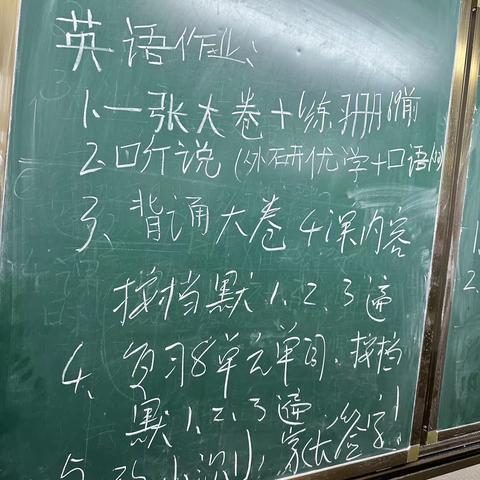 英语作业:
1. 一张大卷+练习册 P8前
2. 口头说(外研优学+口语
3、背诵大卷4课内容
按档默1、2、3遍
4、复习8单元单词、按档
默1、2、3遍.
5、改小测, 家长签字!